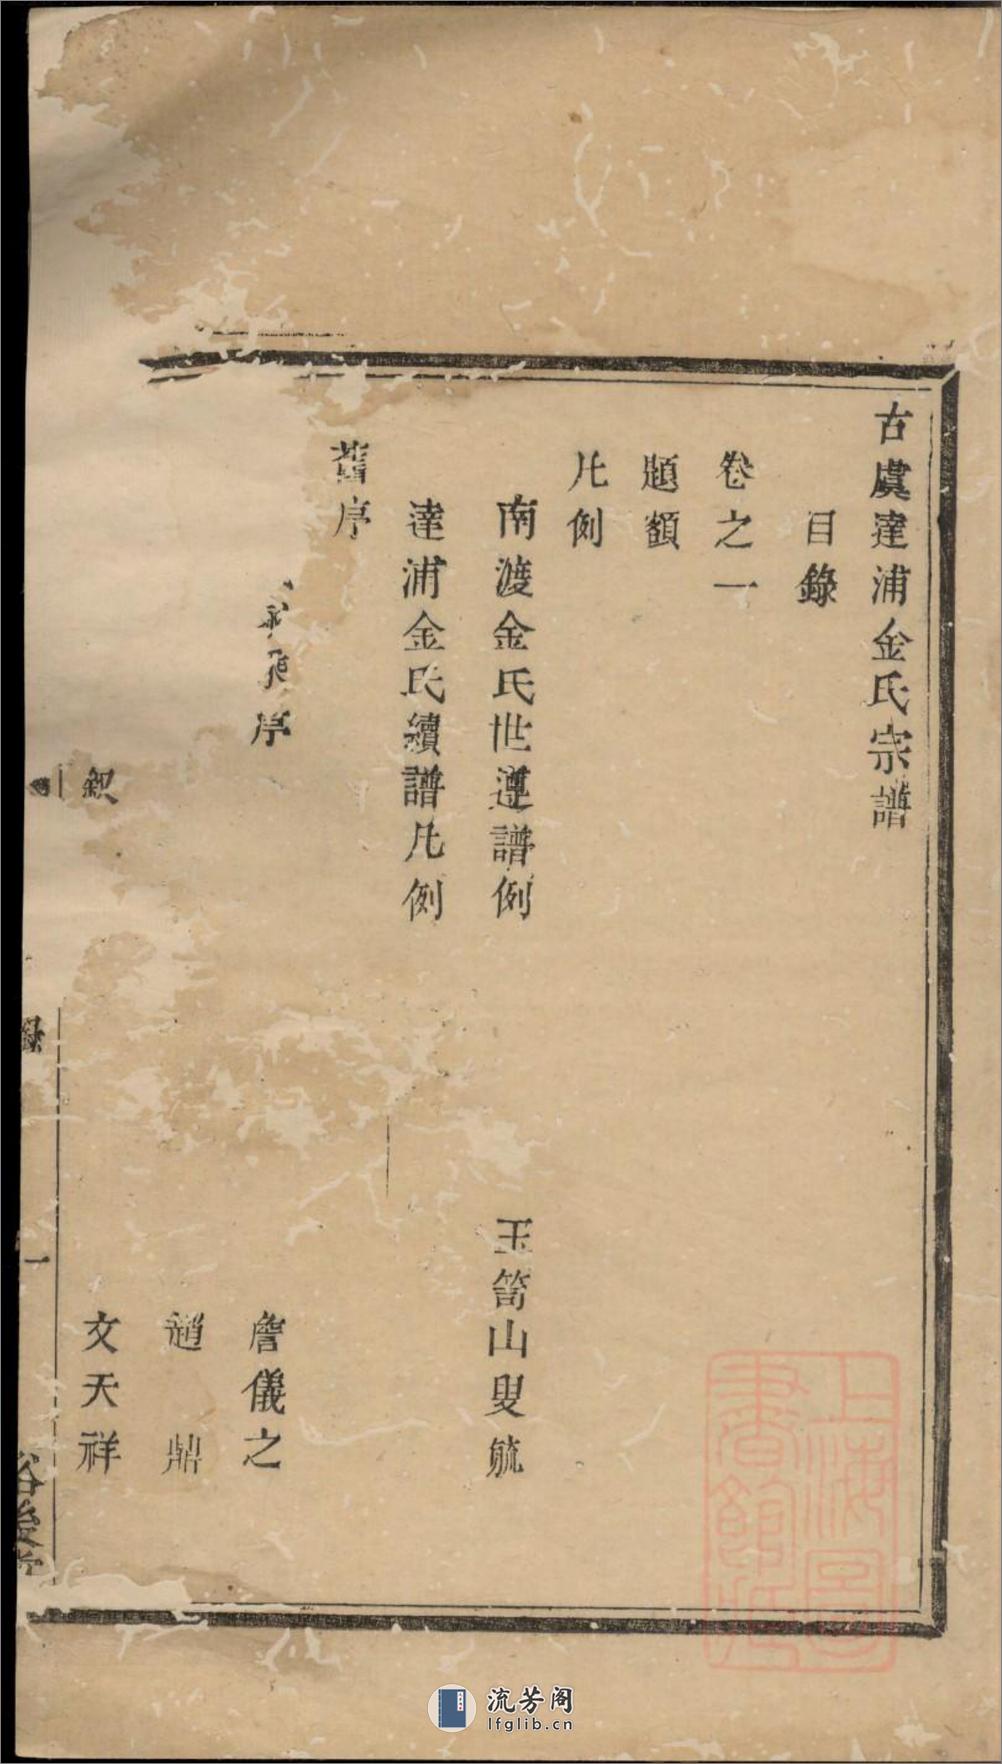 古虞達浦金氏宗譜
目錄
卷之一
題額
凡例
南渡金氏世運譜例 玉笥山叟毓
達浦金氏續譜凡例
舊序
序 詹儀之
趙鼎
敘 文天祥
錄 一 裕後堂
上海圖書館藏
流芳阁
lfglib.cn